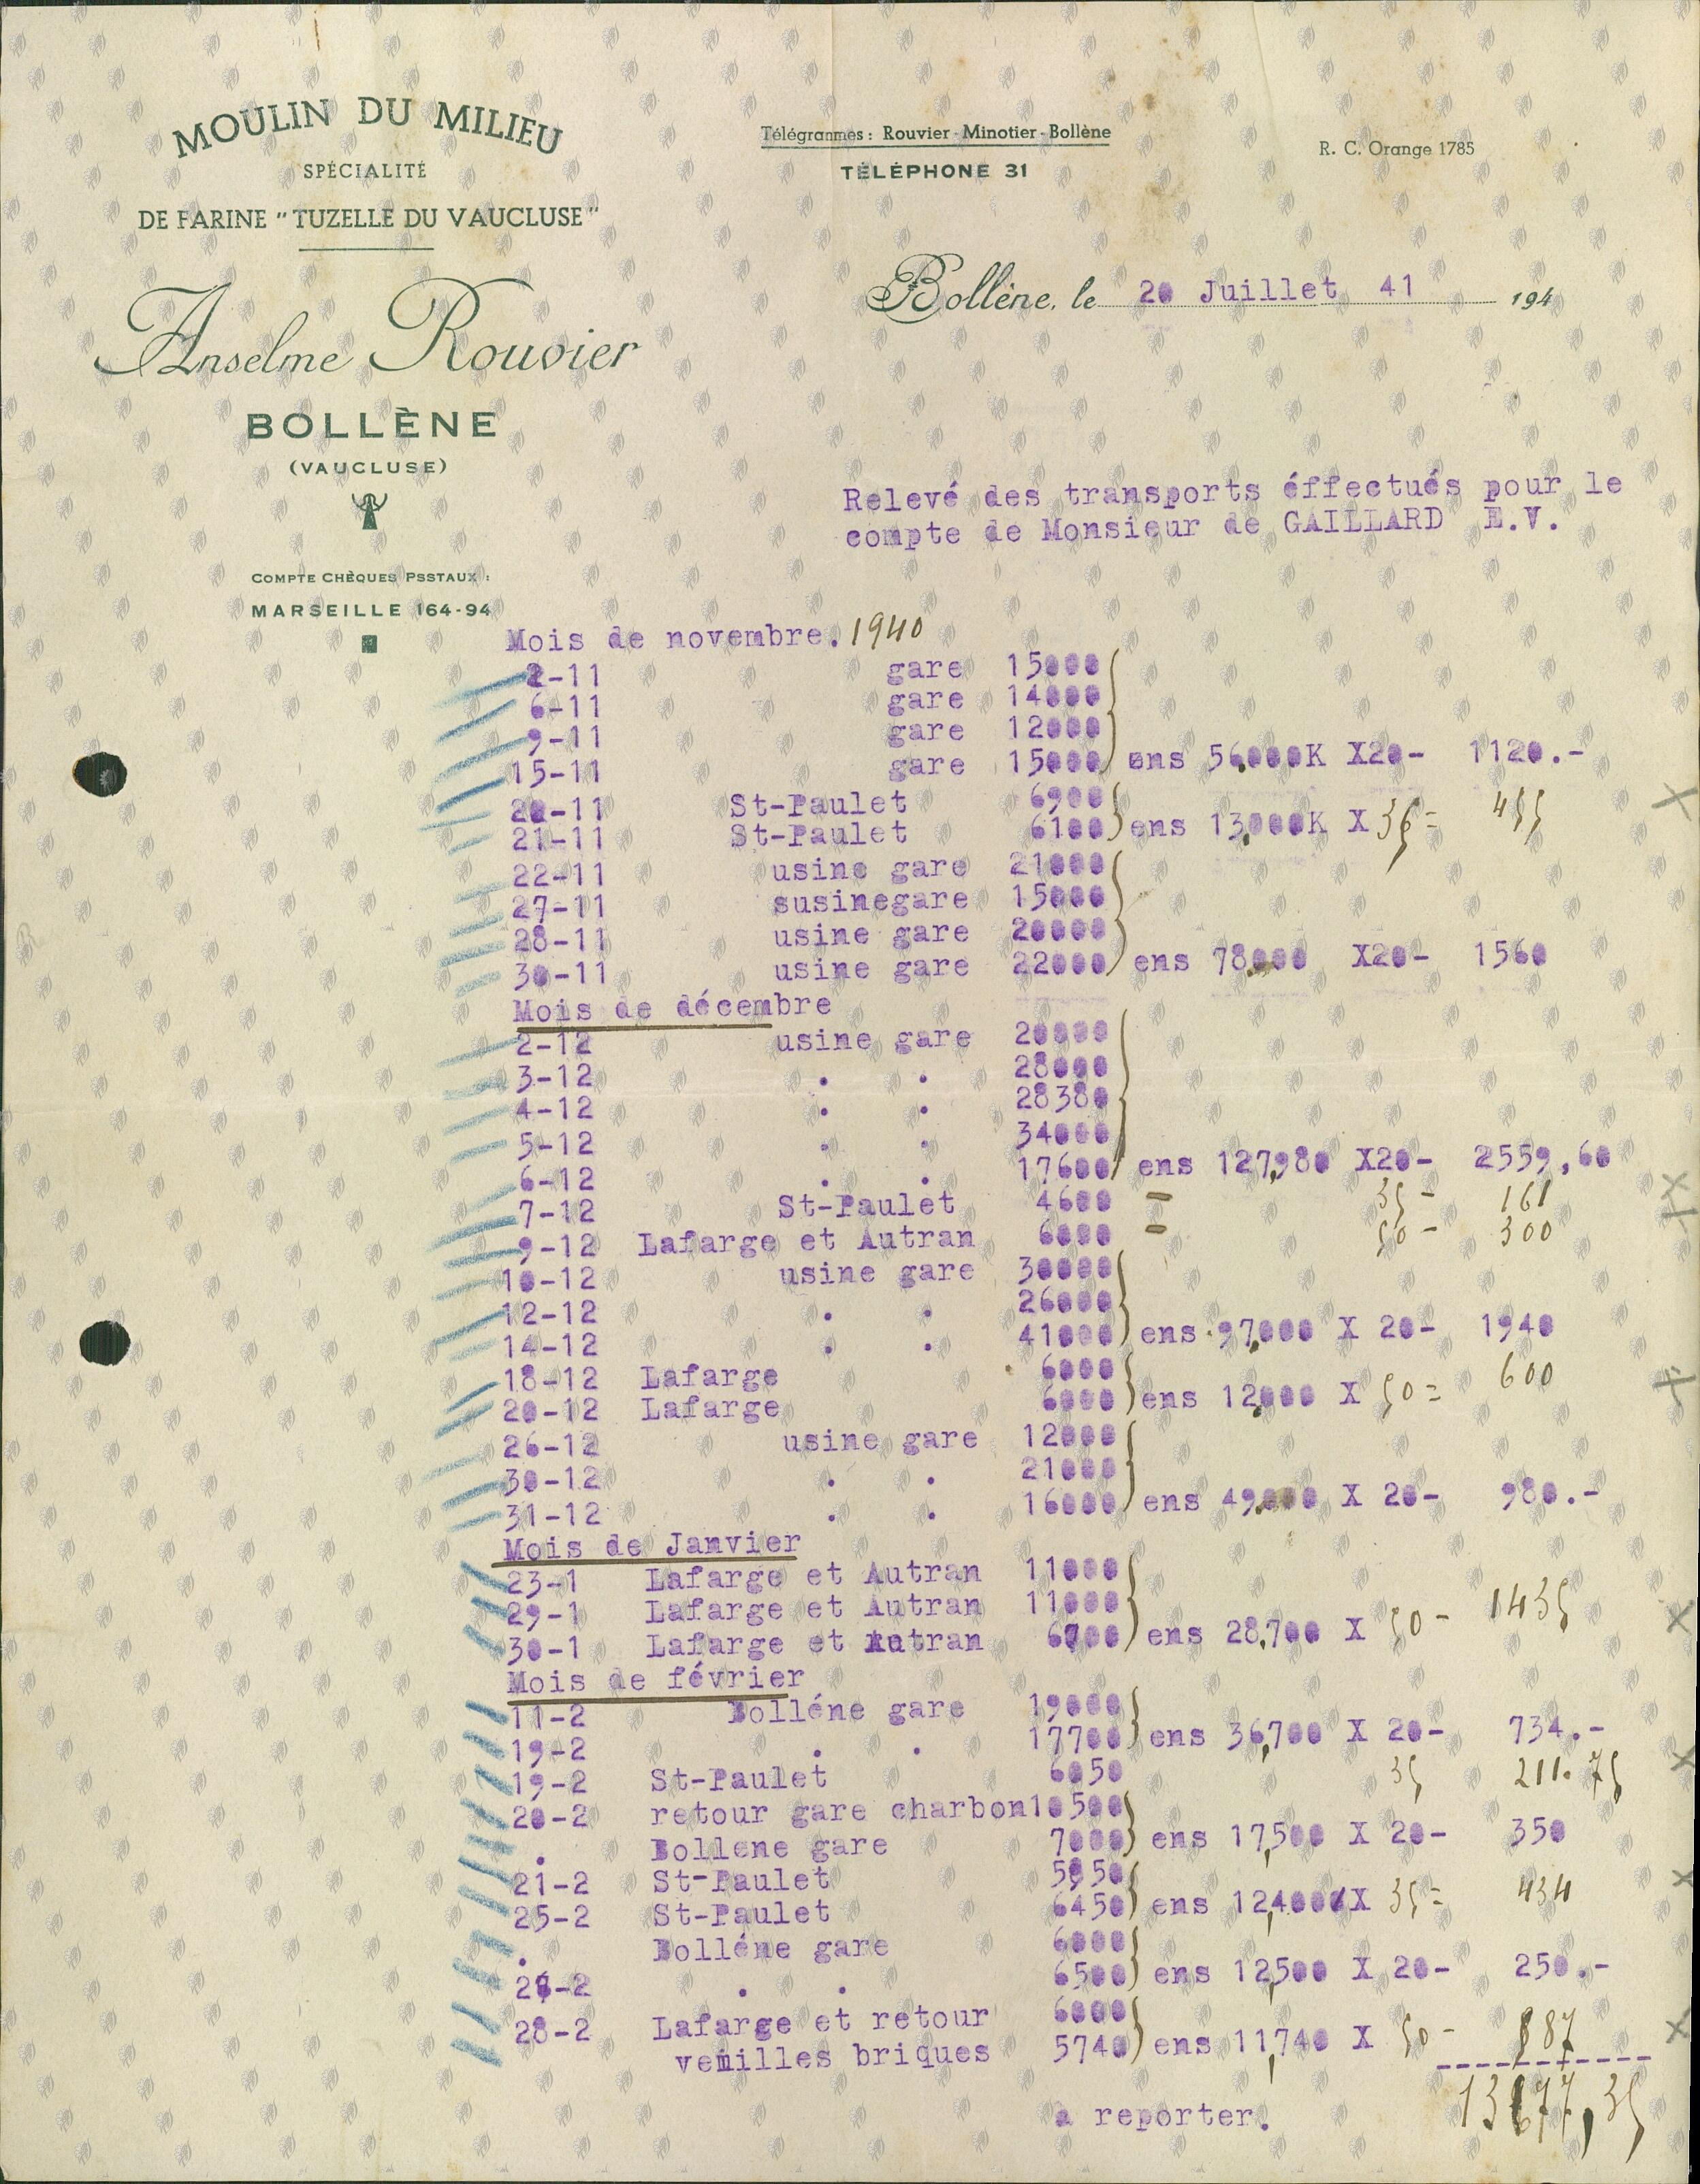 MOULIN DU MILIEU
SPÉCIALITÉ
DE FARINE "TUZELLE DU VAUCLUSE"
Anselme Rouvier
BOLLÈNE
(VAUCLUSE)
COMPTE CHÈQUES PSSTAUX :
MARSEILLE 164-94
Télégrammes : Rouvier - Minotier - Bollène
TÉLÉPHONE 31
R. C. Orange 1785
Bollène, le 20 Juillet 41 194
Relevé des transports éffectués pour le
compte de Monsieur de GAILLARD E.V.
Mois de novembre. 1940
2-11 gare 15000
6-11 gare 14000
9-11 gare 12000
15-11 gare 15000 ens 56,000K X20- 1120.-
20-11 St-Paulet 6900
21-11 St-Paulet 6100 ens 13,000K X 35= 455
22-11 usine gare 21000
27-11 susinegare 15000
28-11 usine gare 20000
30-11 usine gare 22000 ens 78,000 X20- 1560
Mois de décembre
2-12 usine gare 20000
3-12 . . 28000
4-12 . . 28380
5-12 . . 34000
6-12 . . 17600 ens 127,980 X20- 2559,60
7-12 St-Paulet 4600 = 35 - 161
9-12 Lafarge et Autran 6000 = 50 - 300
10-12 usine gare 30000
12-12 . . 26000
14-12 . . 41000 ens 97,000 X 20- 1940
18-12 Lafarge 6000
20-12 Lafarge 6000 ens 12,000 X 50= 600
26-12 usine gare 12000
30-12 . . 21000
31-12 . . 16000 ens 49,000 X 20- 980.-
Mois de Janvier
23-1 Lafarge et Autran 11000
29-1 Lafarge et Autran 11000
30-1 Lafarge et Autran 6700 ens 28,700 X 50 - 1435
Mois de février
11-2 Bolléne gare 19000
19-2 . . 17700 ens 36,700 X 20- 734.-
19-2 St-Paulet 6050 35 211.75
20-2 retour gare charbon 10500
. Bollene gare 7000 ens 17,500 X 20- 350
21-2 St-Paulet 5950
25-2 St-Paulet 6450 ens 12,400 X 35= 434
. Bolléne gare 6000
. . 6500 ens 12,500 X 20- 250.-
28-2 Lafarge et retour 6000
vemilles briques 5740 ens 11,740 X 50 - 587
à reporter. 13677,35